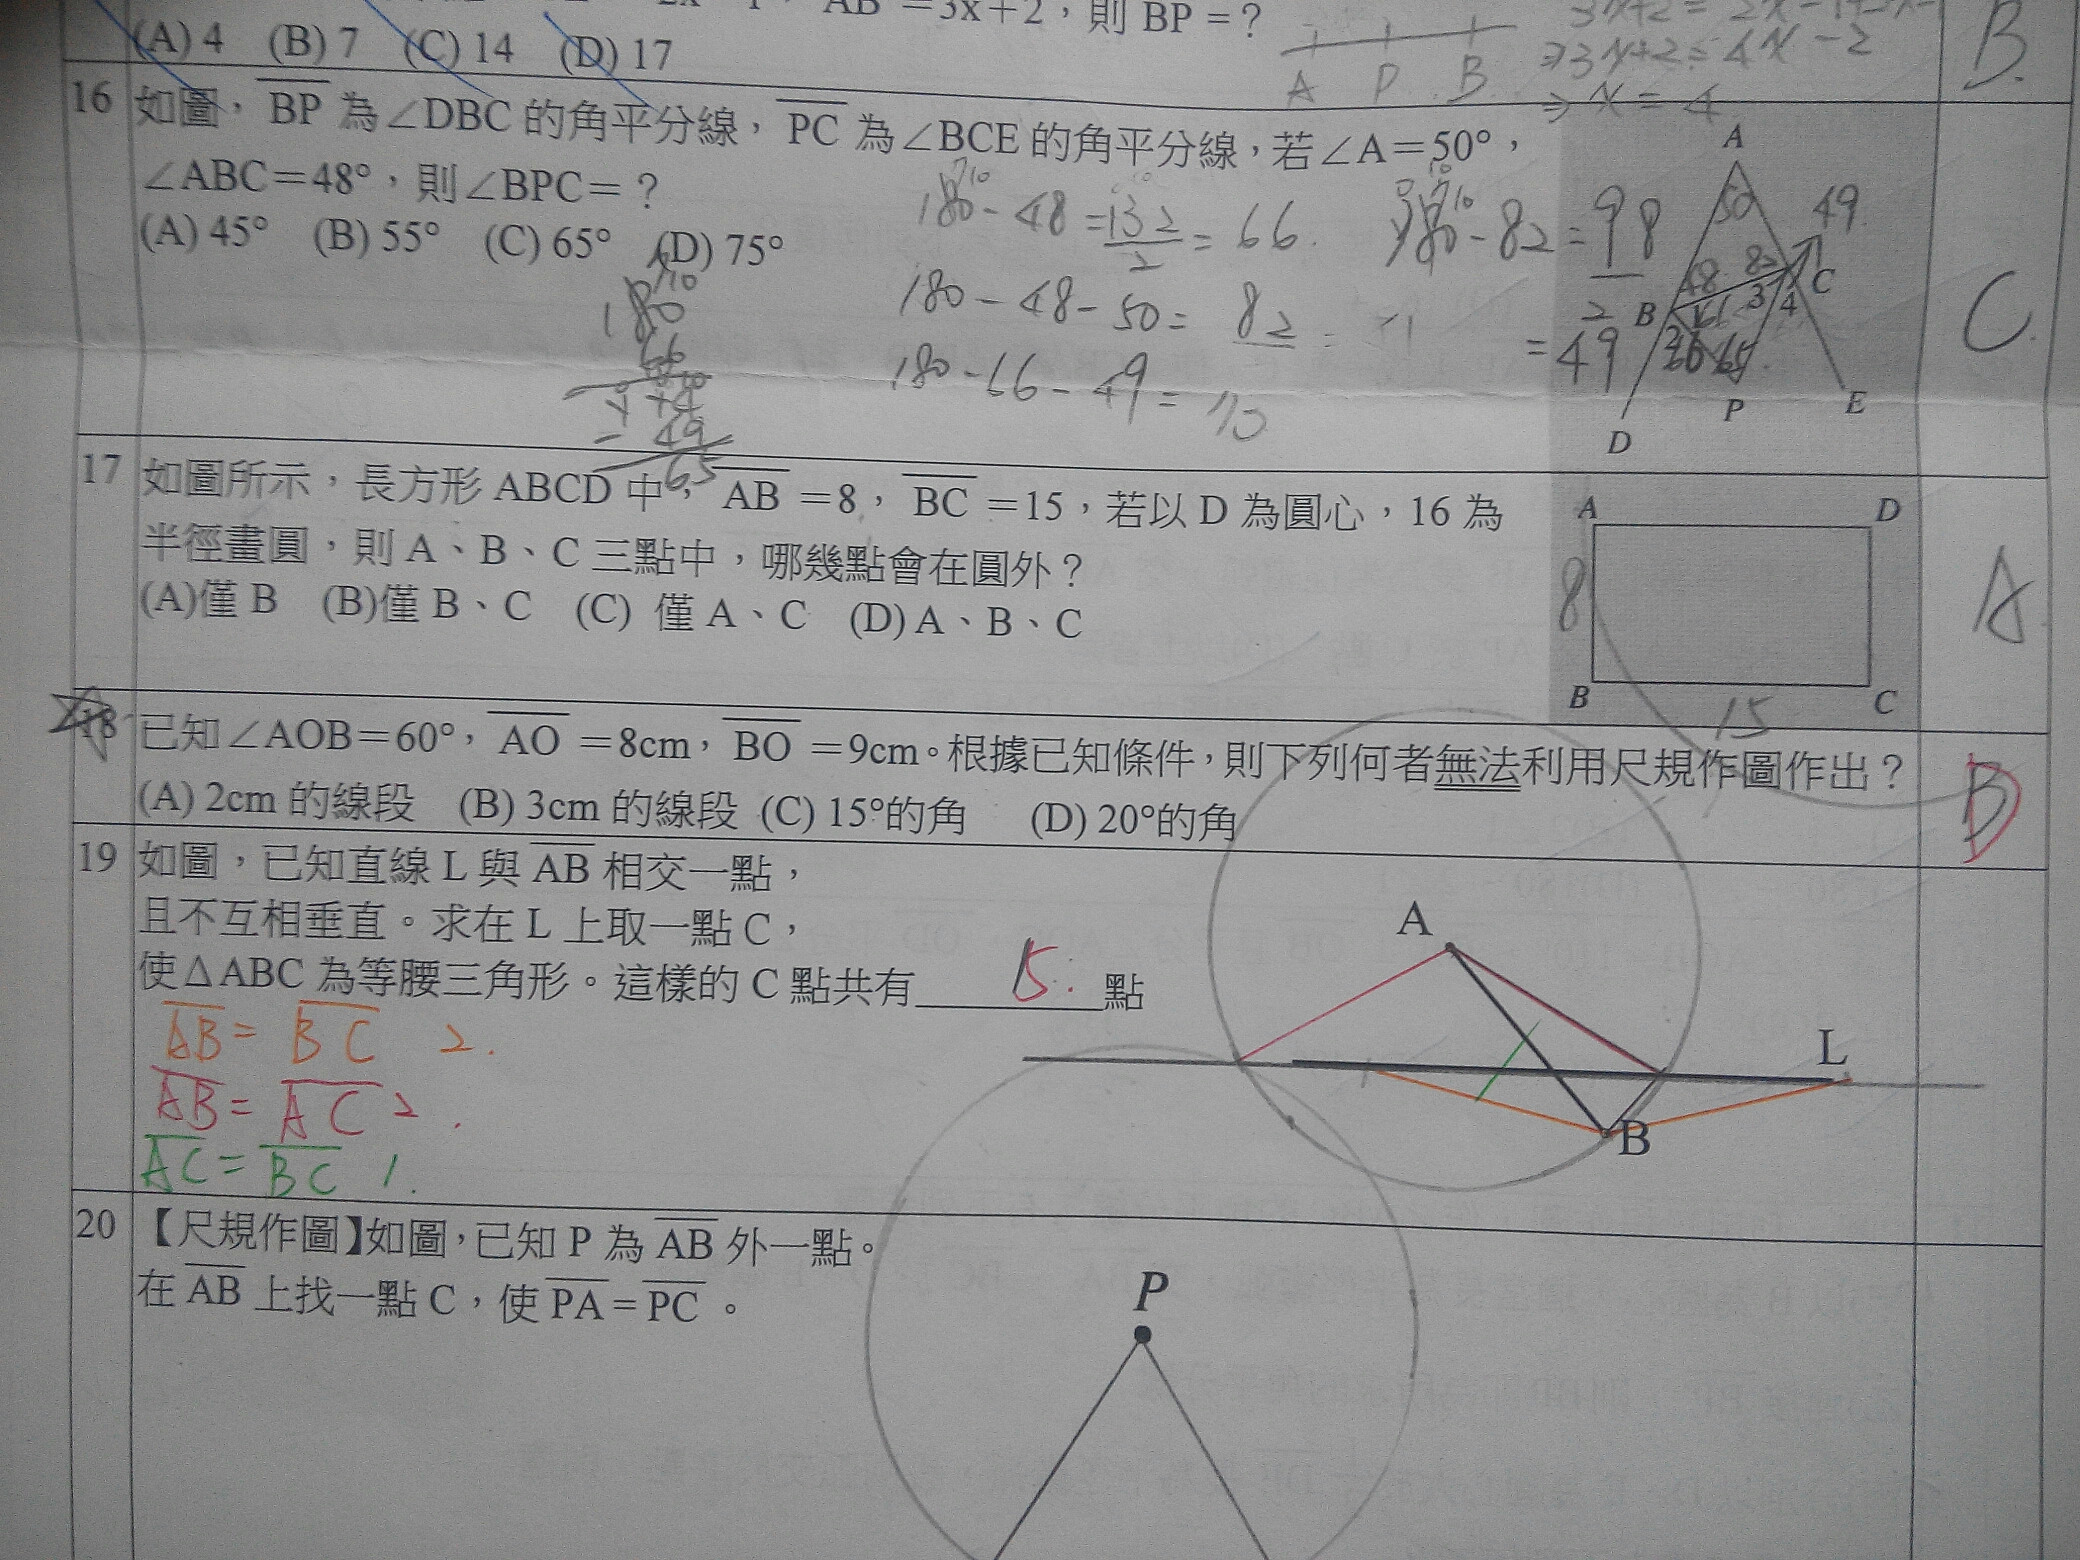 AB = 3x+2，則 BP =？
(A) 4 (B) 7 (C) 14 (D) 17
3x+2=4x-2
⇒ x = 4
A P B
B.
16 如圖，BP 為∠DBC 的角平分線，PC 為∠BCE 的角平分線，若∠A＝50°，
∠ABC＝48°，則∠BPC＝？
(A) 45° (B) 55° (C) 65° (D) 75°
180-48=132/2=66.
180-82=98/2
=49
180-48-50=82
180-66-49=
180
66
49
65
A
50
49
48 82 C
B 3 4
66 65
D P E
C.
17 如圖所示，長方形 ABCD 中，AB＝8，BC＝15，若以 D 為圓心，16 為
半徑畫圓，則 A、B、C 三點中，哪幾點會在圓外？
(A)僅 B (B)僅 B、C (C) 僅 A、C (D) A、B、C
A D
8
B C
15
A
18 已知∠AOB＝60°，AO＝8cm，BO＝9cm。根據已知條件，則下列何者無法利用尺規作圖作出？
(A) 2cm 的線段 (B) 3cm 的線段 (C) 15°的角 (D) 20°的角
19 如圖，已知直線 L 與 AB 相交一點，
且不互相垂直。求在 L 上取一點 C，
使ΔABC 為等腰三角形。這樣的 C 點共有 5. 點
AB = BC 2.
AB = AC 2.
AC = BC 1.
A
L
B
20 【尺規作圖】如圖，已知 P 為 AB 外一點。
在 AB 上找一點 C，使 PA = PC。
P